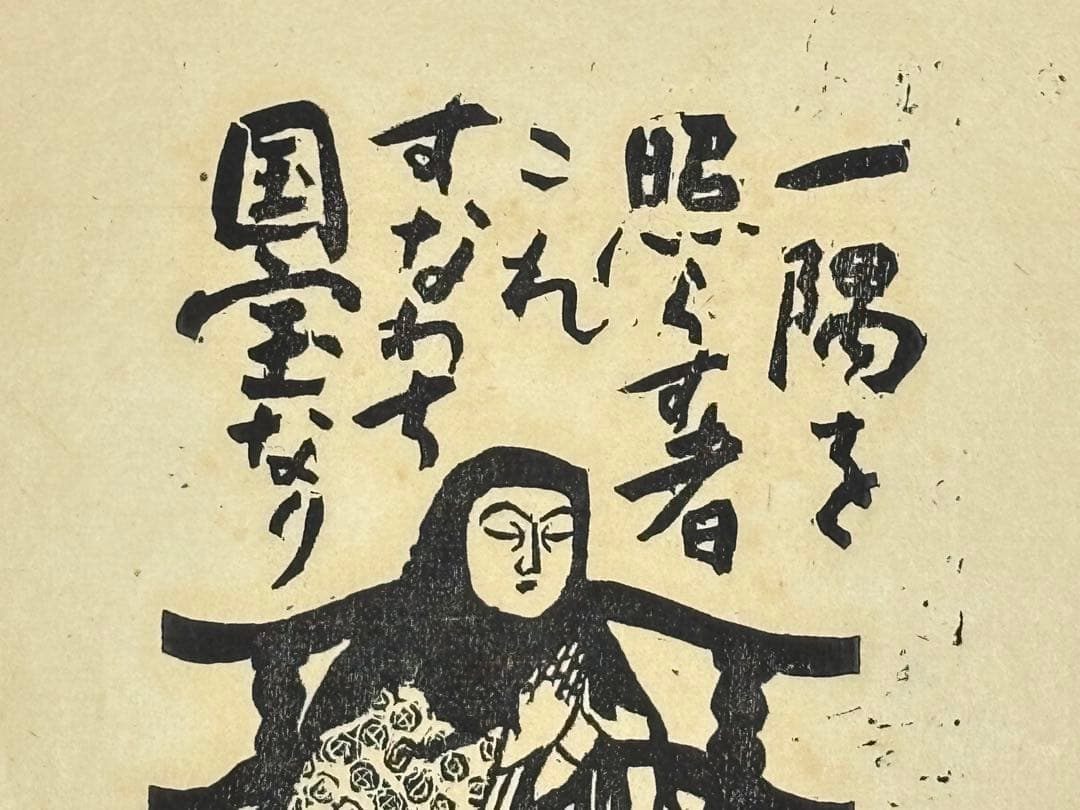 一隅を
照らす者
これ
すなわち
国宝なり